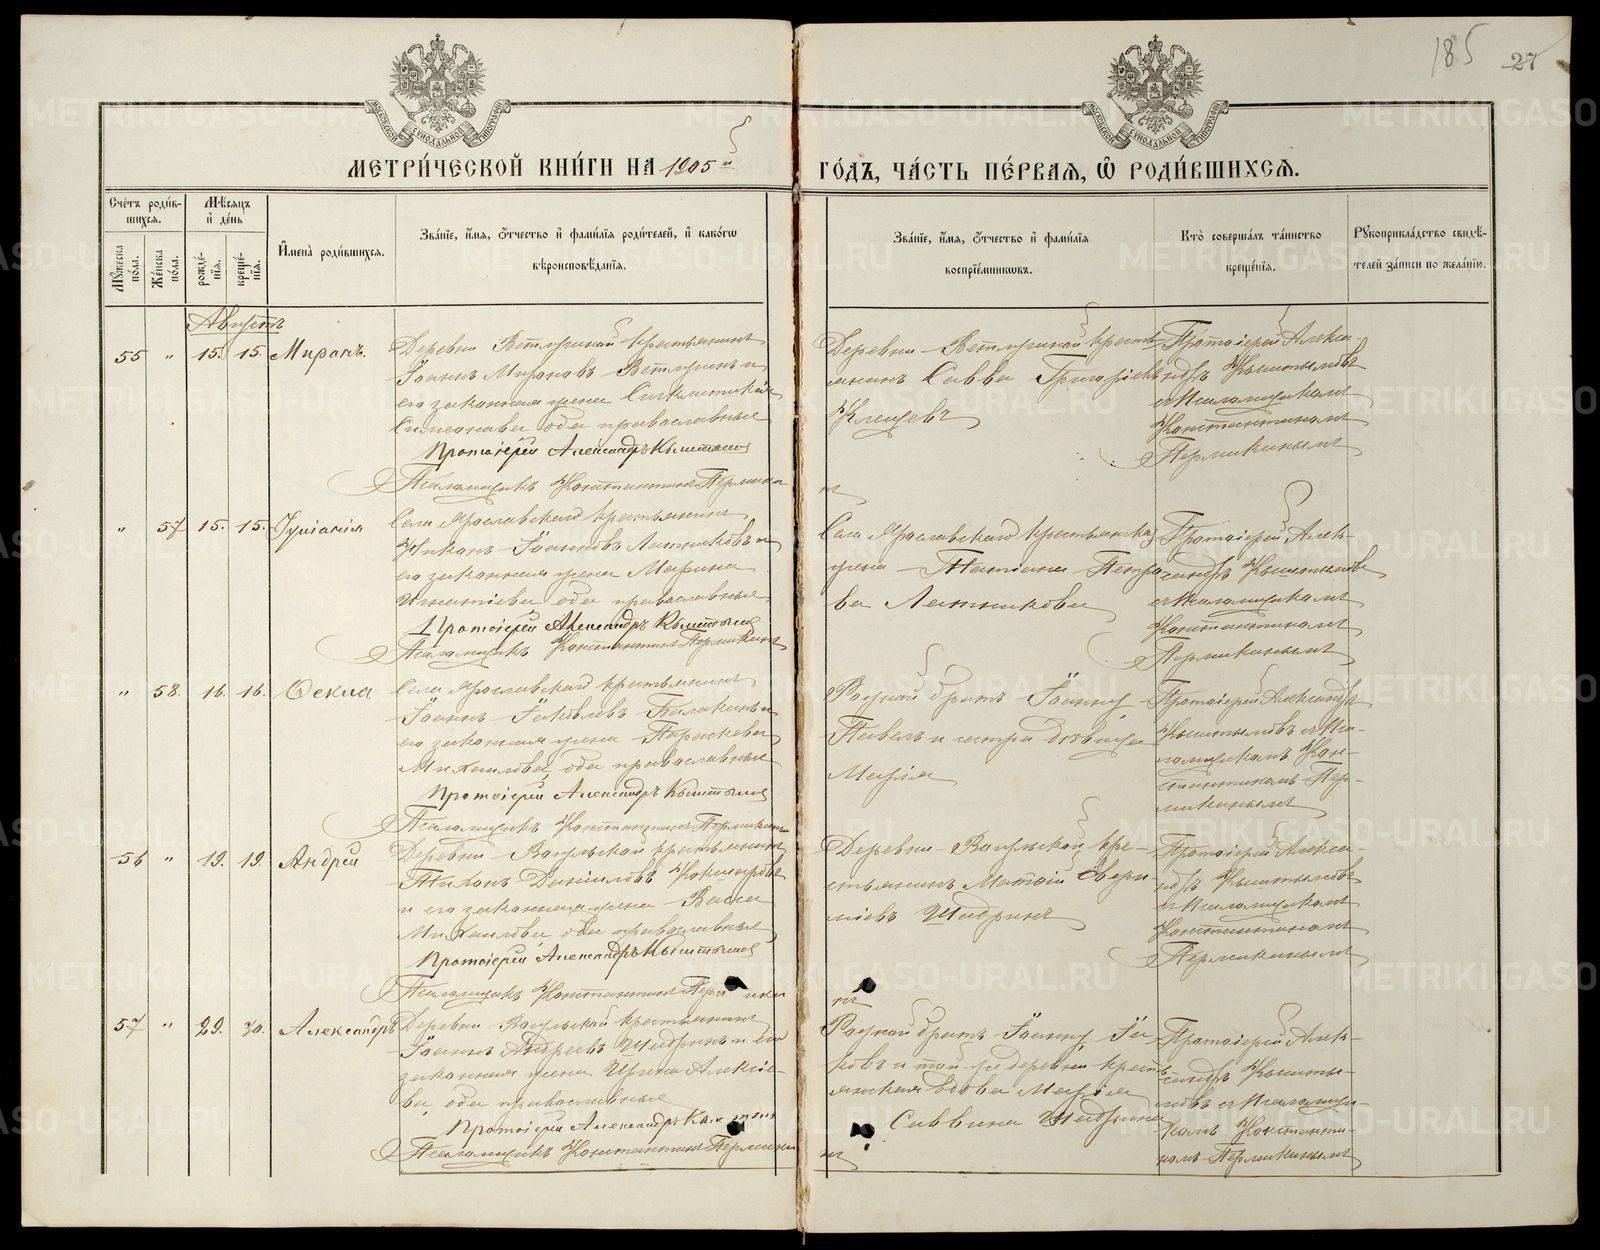 185 27
МОСКОВСКОЙ СѴНОДАЛЬНОЙ ТИПОГРАФІИ
МОСКОВСКОЙ СѴНОДАЛЬНОЙ ТИПОГРАФІИ
МЕТРИ́ЧЕСКОЙ КНИ́ГИ НА 1905й
ГО́ДЪ, ЧА́СТЬ ПЕ́РВАЯ, Ѡ РОДИ́ВШИХСЯ.
Сче́тъ роди́в-
шихся.
Мꙋ́жеска по́ла.
Же́нска по́ла.
Мѣ́сяцъ
и де́нь
рожде́-
нія.
креще́-
нія.
Имена̀ роди́вшихся.
Зва́ніе, и́мя, ѻ́тчество и фами́лія роди́телей, и како́гѡ
вѣроисповѣ́данія.
Зва́ніе, и́мя, ѻ́тчество и фами́лія
воспріе́мникѡвъ.
Кто̀ соверша́лъ та́инство
креще́нія.
Рꙋкоприкла́дство свидѣ́-
телей за́писи по жела́нію.
Августъ
55 " 15. 15. Миронъ.
Деревни Ветлугиной крестьянинъ
Іоаннъ Мироновъ Ветлугинъ и
его законная жена
Симеонова оба православные
Протоіерей Александръ Кыштымовъ
Псаломщикъ Константинъ Пермикинъ
Деревни Ветлугиной кресть-
янинъ Савва Григоріевъ
Клещевъ
Протоіерей Алекса-
ндръ Кыштымовъ
съ Псаломщикомъ
Константиномъ
Пермикинымъ
" 57 15. 15. Іуліанія
Села Ярославскаго крестьянинъ
Никонъ Іоанновъ Лятниковъ и
его законная жена Марина
Игнатіева оба православные
Протоіерей Александръ Кыштымовъ
Псаломщикъ Константинъ Пермикинъ
Села Ярославскаго крестьянская
жена Татіана Петро-
ва Лятникова
Протоіерей Алек-
сандръ Кыштымовъ
съ Псаломщикомъ
Константиномъ
Пермикинымъ
" 58. 16. 16. Ѳекла
Села Ярославскаго крестьянинъ
Іоаннъ Іаковлевъ Балакинъ и
его законная жена Параскева
Михаилова, оба православные
Протоіерей Александръ Кыштымовъ
Псаломщикъ Константинъ Пермикинъ
Родной братъ Іоанну
Павелъ и сестра дѣвица
Марія
Протоіерей Александръ
Кыштымовъ съ Пса-
ломщикомъ Кон-
стантиномъ Пер-
микинымъ
56 " 19. 19. Андрей
Деревни крестьянинъ
Тихонъ Даніиловъ
и его законная жена Васса
Михаилова оба православные
Протоіерей Александръ Кыштымовъ
Псаломщикъ Константинъ Пермикинъ
Деревни кре-
стьянинъ Матѳій
Шадринъ
Протоіерей Алекса-
ндръ Кыштымовъ
съ Псаломщикомъ
Константиномъ
Пермикинымъ
57 " 29. 30. Александръ
Деревни крестьянинъ
Іоаннъ Андреевъ Шадринъ и его
законная жена Ирина Алексіе-
ва, оба православные
Протоіерей Александръ Кыштымовъ
Псаломщикъ Константинъ Пермикинъ
Родной братъ Іоанну Іа-
ковъ и той же деревни кресть-
янская вдова Марія
Саввина Шадрина
Протоіерей Алек-
сандръ Кышты-
мовъ съ Псаломщи-
комъ Константи-
номъ Пермикинымъ
METRIKI.GASO-URAL.RU